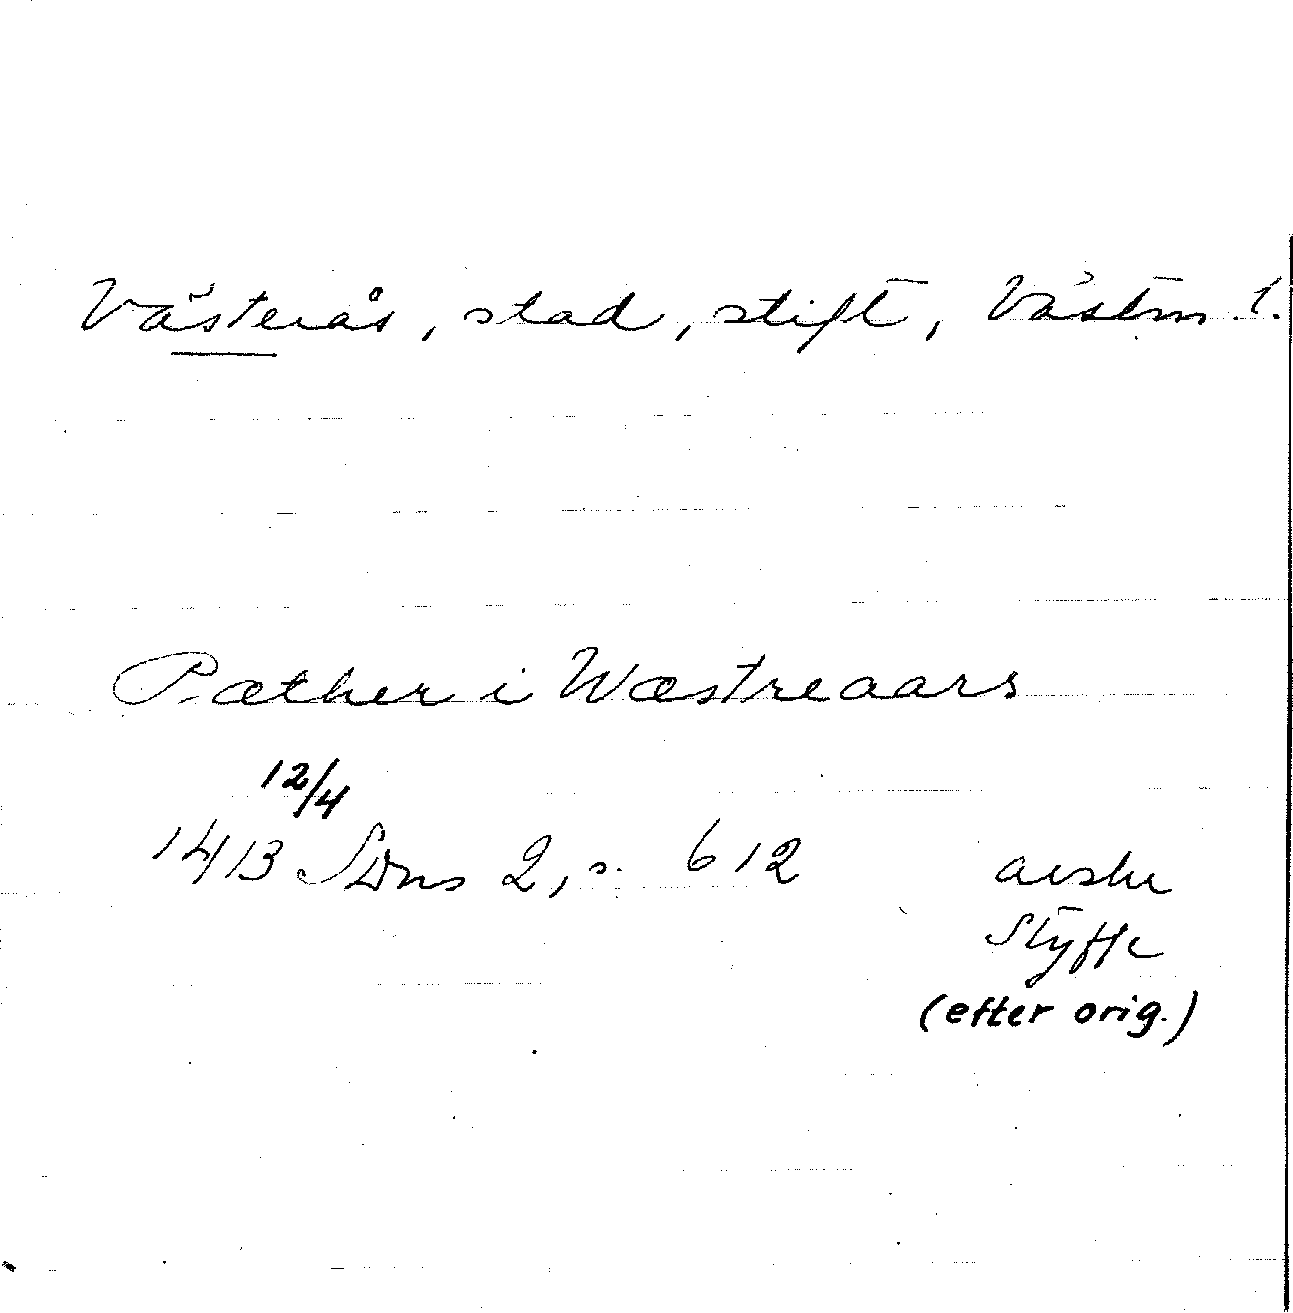 Västerås, stad, stift, Västm. l.
Pæther i Wæstreaars
12/4
1413 SDns 2, s. 612 avskr
Styffe
(efter orig.)